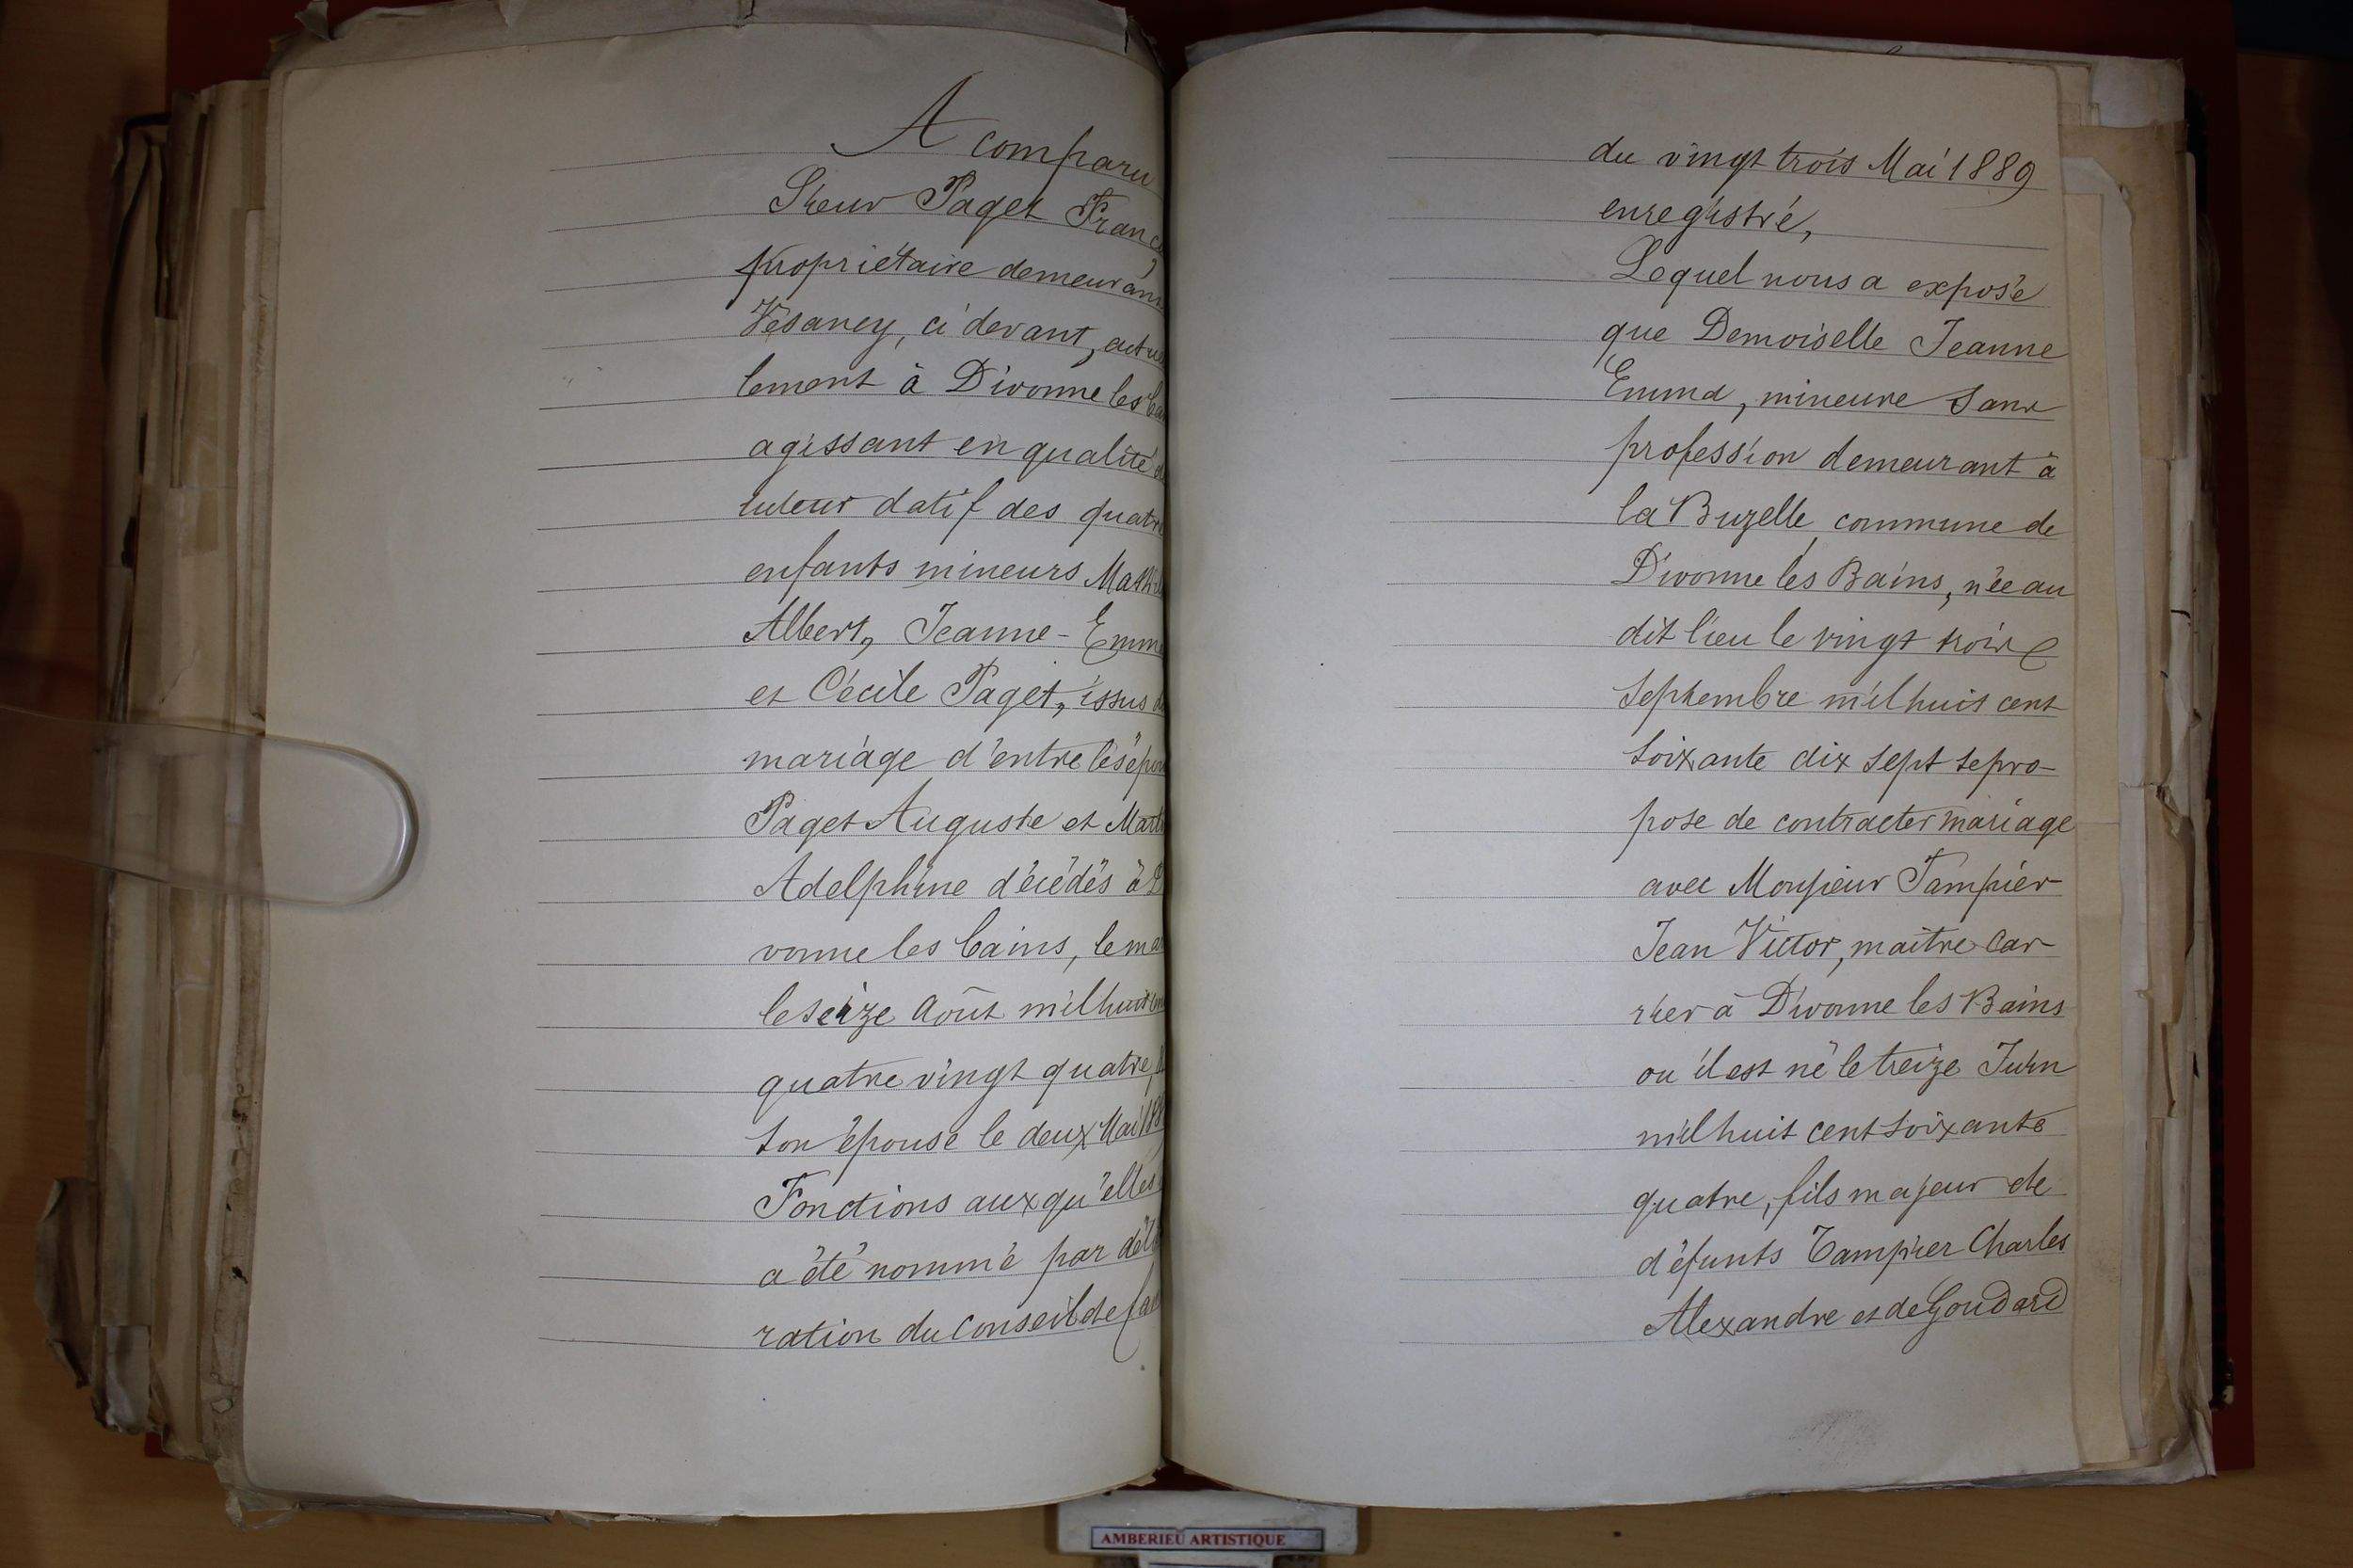 A comparu
Sieur Paget Franç
propriétaire demeurant
Vesancy, ci devant, actuel
lement à Divonne les ba
agissant en qualité de
tuteur datif des quatre
enfants mineurs Mathil
Albert, Jeanne-Emma
et Cécile Paget, issus du
mariage d'entre les épou
Paget Auguste et Mart
Adelphine décédés à D
vonne les bains, le mar
le seize Août mil huit cen
quatre vingt quatre, e
son épouse le deux Mai 188
Fonctions auxqu'elles
a été nommé par déli
ration du Conseil de fa
du vingt trois Mai 1889
enregistré,
Lequel nous a exposé
que Demoiselle Jeanne
Emma, mineure sans
profession demeurant à
la Buzelle commune de
Divonne les Bains, née au
dit lieu le vingt trois
Septembre mil huit cent
soixante dix sept se pro-
pose de contracter mariage
avec Monsieur Tampier
Jean Victor, maitre car-
rier à Divonne les Bains
ou il est né le treize Juin
mil huit cent soixante
quatre, fils majeur de
défunts Tampier Charles
Alexandre et de Goudard
AMBERIEU ARTISTIQUE